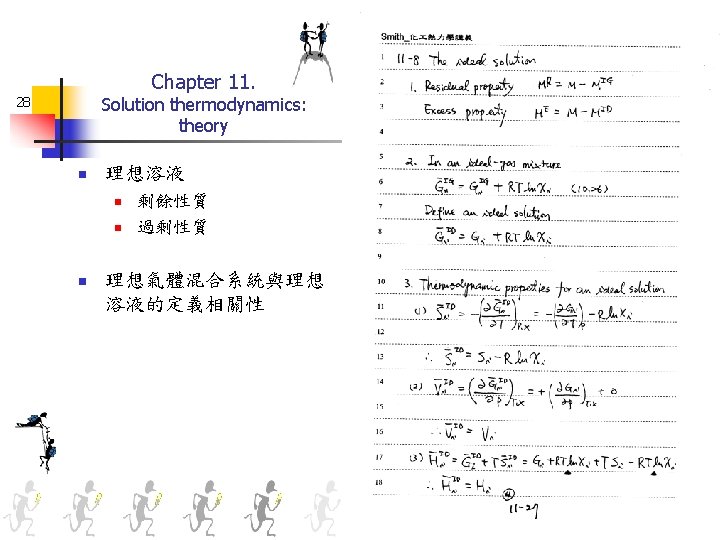 28
Chapter 11.
Solution thermodynamics:
theory
理想溶液
剩餘性質
過剩性質
理想氣體混合系統與理想
溶液的定義相關性
Smith_化工熱力學講義
1 11-8 The ideal solution
2 1. Residual property M^R = M - M^IG
3 Excess property M^E = M - M^ID
4
5 2. In an ideal-gas mixture
6 Ḡi^IG = Gi^IG + RT ln Xi (10.26)
7 Define an ideal solution
8 Ḡi^ID = Gi + RT ln Xi
9
10 3. Thermodynamic properties for an ideal solution
11 (1) S̄i^ID = -(∂Ḡi^ID/∂T)P,x = -(∂Gi/∂T)P - R ln Xi
12
13 ∴ S̄i^ID = Si - R ln Xi
14 (2) V̄i^ID = (∂Ḡi^ID/∂P)T,x = +(∂Gi/∂P)T,x + 0
15
16 ∴ V̄i^ID = Vi
17 (3) H̄i^ID = Ḡi^ID + T S̄i^ID = Gi + RT ln Xi + T Si - RT ln Xi
18 ∴ H̄i^ID = Hi
11-27